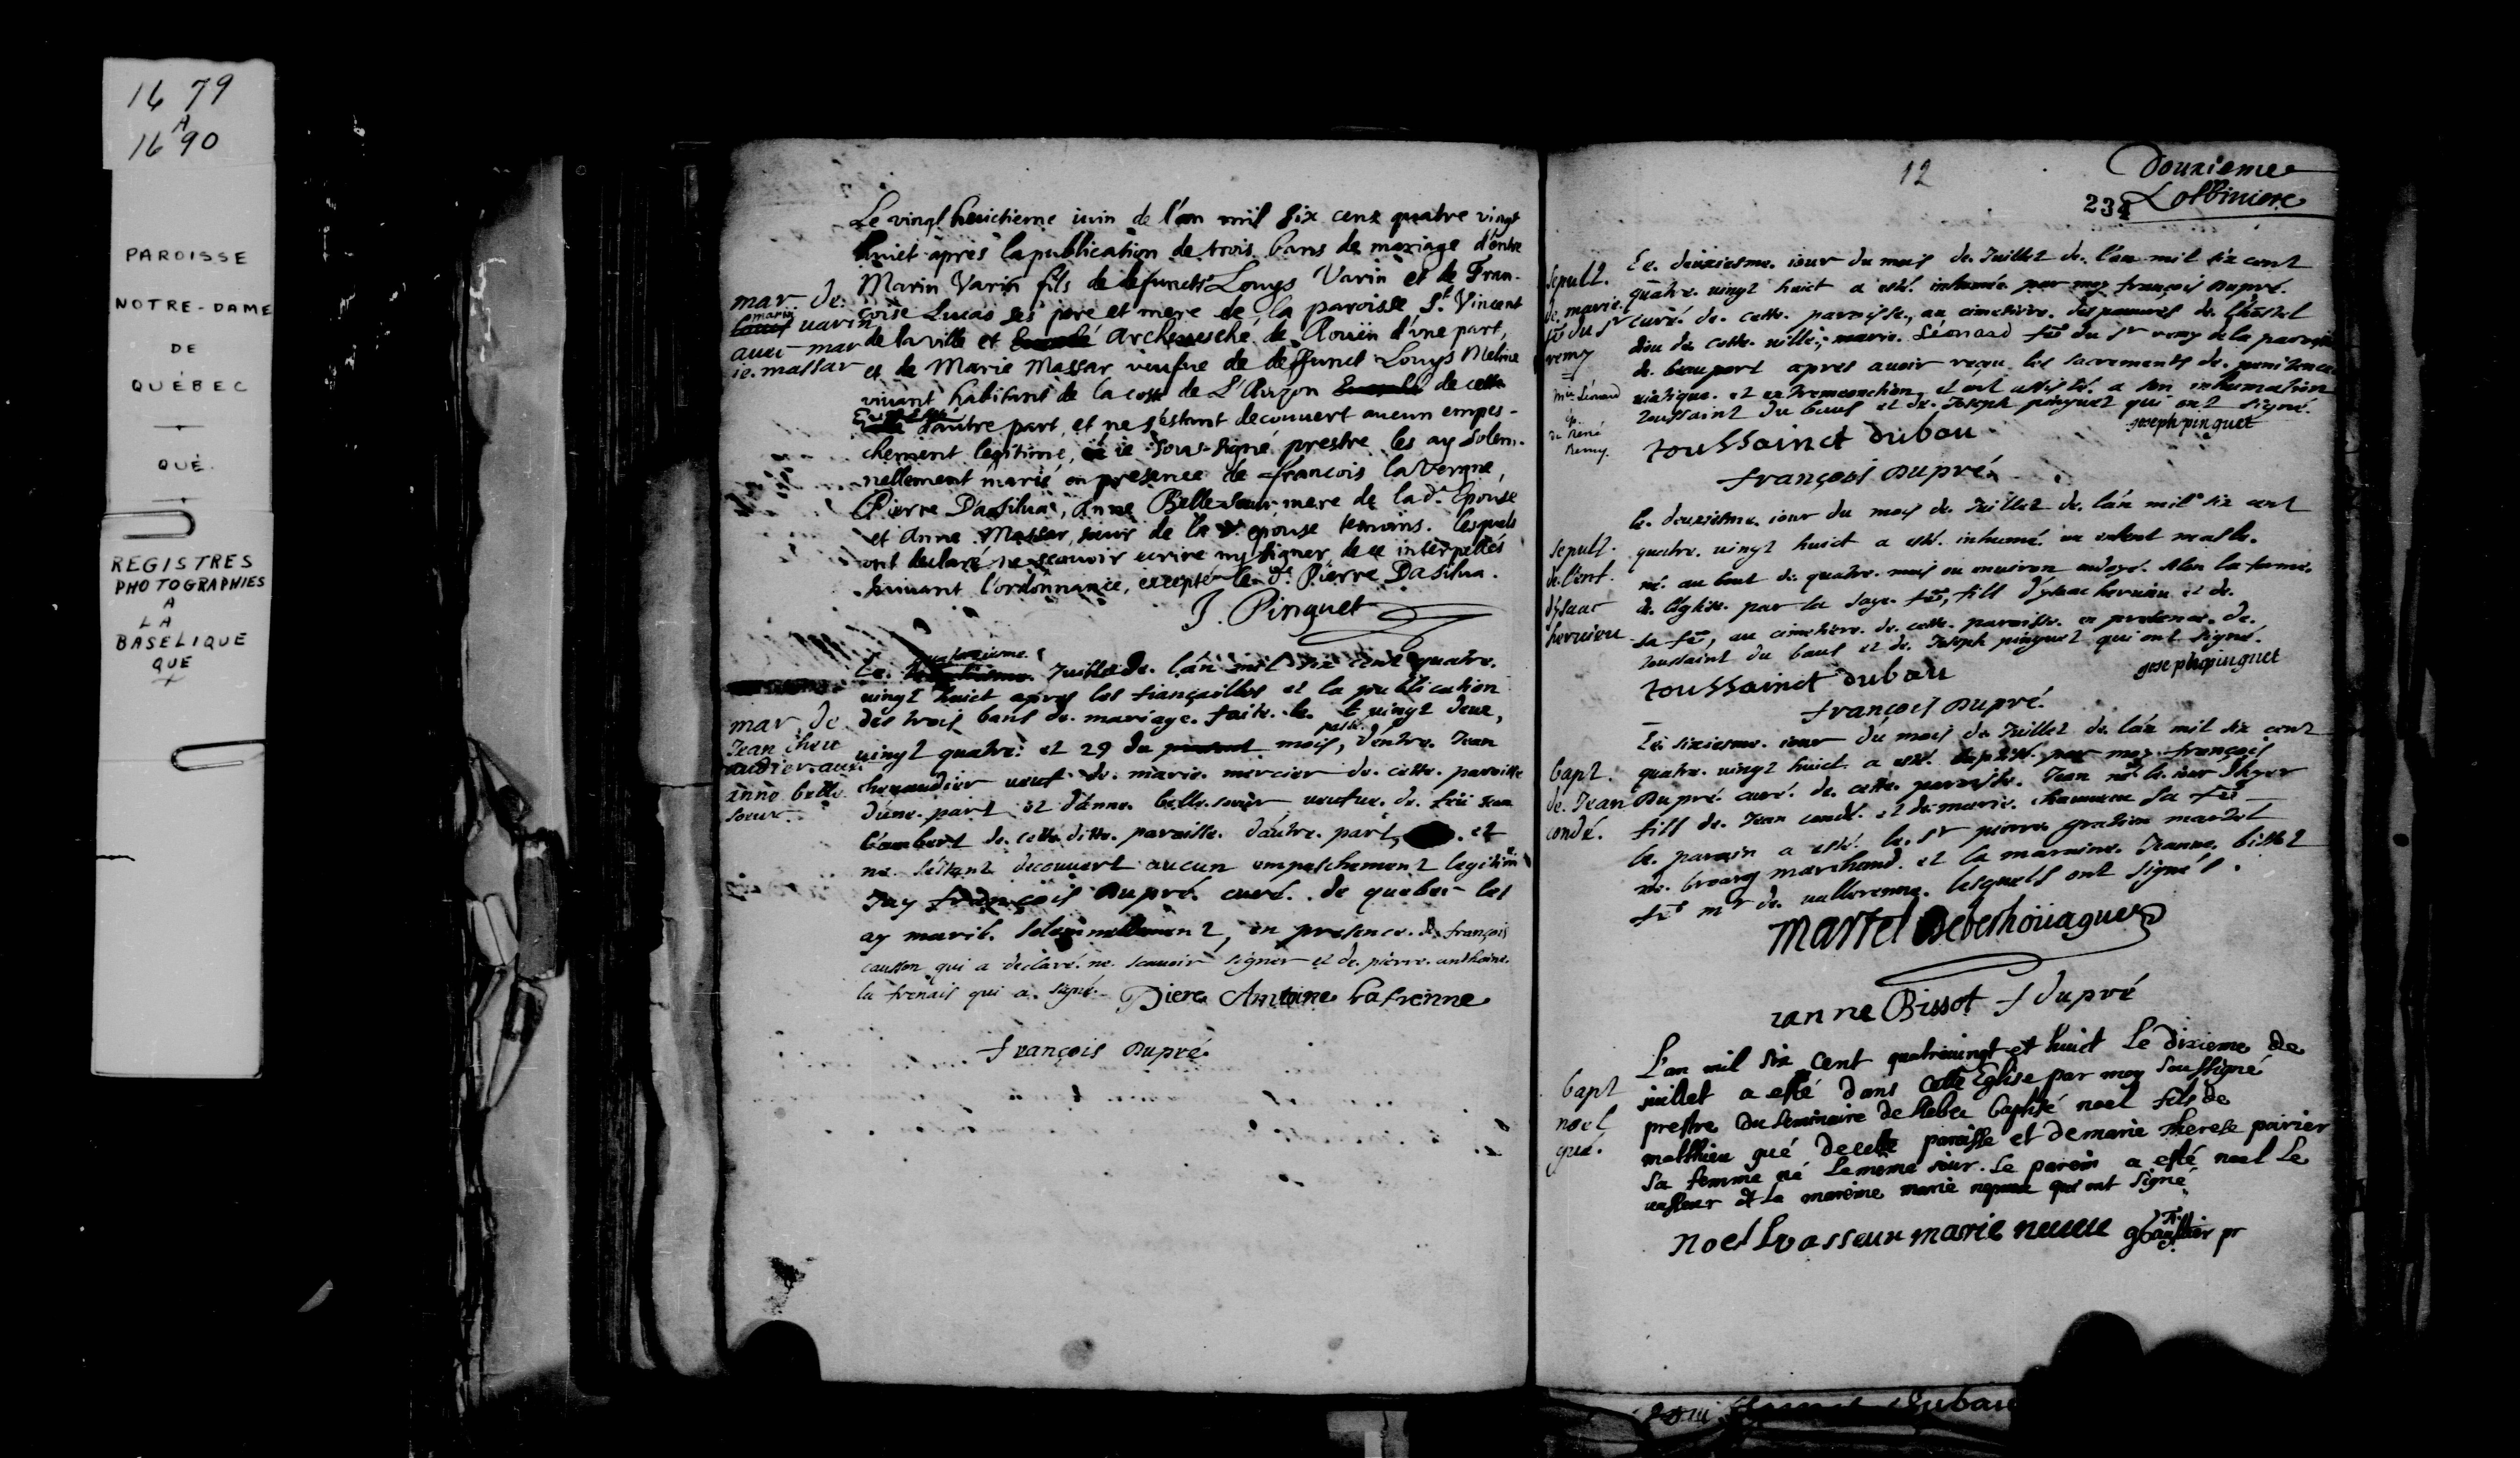 1679
A
1690
PAROISSE
NOTRE-DAME
DE
QUÉBEC
QUÉ.
REGISTRES
PHOTOGRAPHIES
A
LA
BASELIQUE
QUE
Le vingt huictieme iuin de l'an mil six cens quatre vingt
huict après la publication de trois bans de mariage d'entre
Marin Varin fils de defuncts Louys Varin et de Fran-
coise Lucas ses pere et mere de la paroisse St. Vincent
de la ville et Archevesché de Roüen d'une part,
et de Marie Massar veufve de deffunct Louys Meline
vivant habitant de la coste de L'Auzon de cette
d'autre part, et ne s'estant decouvert aucun empes-
chement legitime, ie sous-signé prestre les ay solem-
nellement marié en presence de francois lavergne,
Pierre Dasilva, Anne Belle-soeur mere de la de. Epouse
et Anne Massar, soeur de la de. epouse temoins. lesquels
ont declaré ne scavoir ecrire ny signer de ce interpellés
suivant l'ordonnance, excepté le d. Pierre Dasilva.
J. Pinguet
mar de.
marin
varin
avec mar
ie. massar
quatorzieme
Le. Juillet de. l'an mil six cent quatre.
vingt huict apres les fiançailles et la publication
des trois bans de. mariage. faite. le. vingt deux,
passé.
vingt quatre. et 29 du mois, d'entre. Jean
chevaudier veuf de. marie. mercier de. cette. paroisse
d'une. part et d'anne. belle. soeur veufve. de. feu Jean
lambert de. cette ditte. paroisse. d'autre. part, et
ne. s'éstant decouvert aucun empeschement legitim
Jay françois Dupré. curé. de quebec les
ay mariés. solemnellement, en presence. de françois
causson qui a declaré. ne. scavoir signer et de. pierre. anthoine.
la frenais qui a. signé. Piere Antoine Lafrenne
françois Dupré.
mar de
Jean chev
audier. avec
anne belle
soeur.
12
Douzieme
234 Lotbiniere
Le. deuxiesme. iour du mois de. Juillet de. l'an mil six cent
quatre. vingt huict a esté. inhumée par moy françois Dupré.
curé. de. cette. paroisse., au cimetière. des pauvres de. l'hostel
dieu de cette. ville; marie. Léonard fe. du Sr remy de la paroisse
de. beauport apres avoir reçu les sacrements de. penitence
viatique. et extremeonction, et ont assisté. a son inhumation
toussaint du baus et de. Joseph pinguet qui ont signé.
toussainct dubau
joseph pinguet
françois Dupré.
sepult.
de. marie.
fe. du Sr
remy
Mie Léonard
ép.
de René
Remy.
Le. deuxiesme. iour du mois de. Juillet de. l'an mil six cent
quatre. vingt huict a esté. inhumé. un enfant masle.
né. au bout de. quatre. mois ou environ ondoyé. selon la forme.
de. l'église. par la sage. fe., fils d'ysaac hervieu et de.
sa fe., au cimetiere. de. cette. paroisse. en presence. de.
toussaint du baus et de. Joseph pinguet qui ont signé.
toussainct dubau
joseph pinguet
françois Dupré.
sepult.
de. l'enf.
d'ysaac
hervieu
Le. sixiesme. iour du mois de. Juillet de. l'an mil six cent
quatre. vingt huict a esté. baptisé. par moy françois
Dupré. curé. de. cette. paroisse. Jean né. le. iour d'hyer
fils de. Jean condé. et de. marie. sa fe.
le. parain a esté. le. Sr pierre gratien martel
de. brouag marchand. et la maraine. Jeanne. bissot
fe. mr de. vallerenne. lesquels ont signés.
martel Deberhoüague
ianne Bissot f dupré
bapt.
de. Jean
condé.
L'an mil six cent quatrevingt et huict le dixieme de
juillet a esté dans cette Eglise par moy soussigné
prestre du seminaire de kebec baptisé noel fils de
matthieu gué de cette paroisse et de marie therese poirier
sa femme né le meme iour. le parein a esté noel le
vasseur et la mareine marie nepveu qui ont signé
noel lvasseur marie neveu gbaultier pr
bapt
noel
gué.
dubau